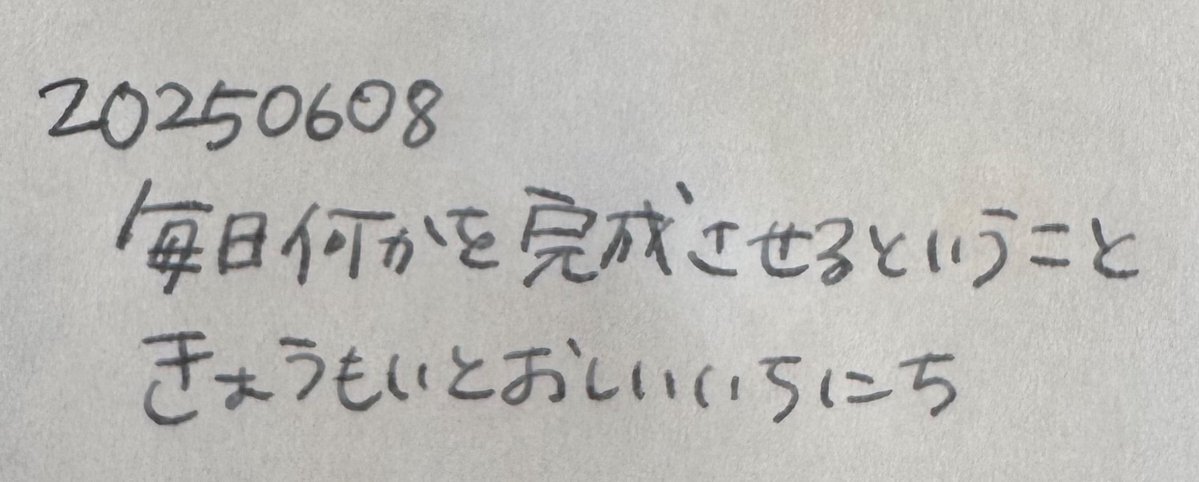 20250608
毎日何かを完成させるということ
きょうもいとおしいいちにち